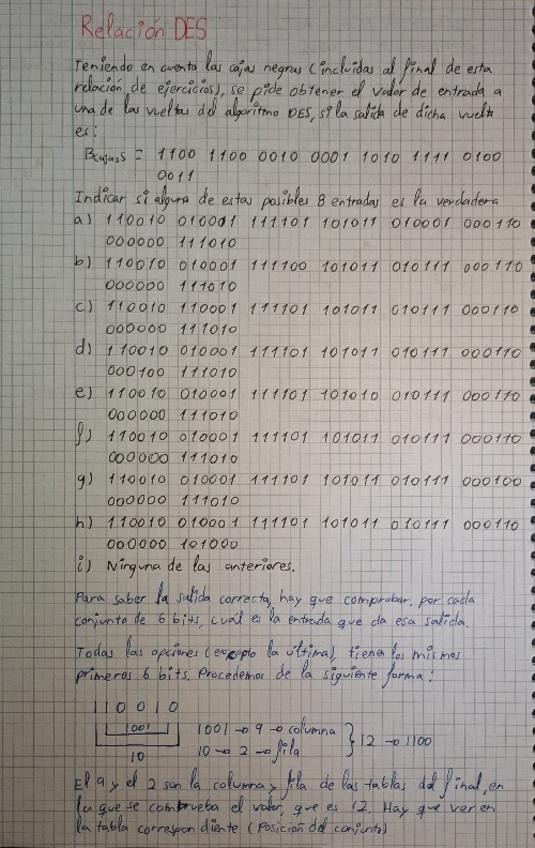 Relación DES
Teniendo en cuenta las cajas negras (incluidas al final de esta
relación de ejercicios), se pide obtener el valor de entrada a
una de las vueltas del algoritmo DES, si la salida de dicha vuelta
es:
Bcajas S = 1100 1100 0010 0001 1010 1111 0100
0011
Indicar si alguna de estas posibles 8 entradas es la verdadera
a) 110010 010001 111101 101011 010001 000110
000000 111010
b) 110010 010001 111100 101011 010111 000110
000000 111010
c) 110010 110001 111101 101011 010111 000110
000000 111010
d) 110010 010001 111101 101011 010111 000110
000100 111010
e) 110010 010001 111101 101010 010111 000110
000000 111010
f) 110010 010001 111101 101011 010111 000110
000000 111010
g) 110010 010001 111101 101011 010111 000100
000000 111010
h) 110010 010001 111101 101011 010111 000110
000000 101000
i) Ninguna de las anteriores.
Para saber la salida correcta, hay que comprobar, por cada
conjunto de 6 bits, cuál es la entrada que da esa salida.
Todas las opciones (excepto la última), tienen los mismos
primeros 6 bits. Procedemos de la siguiente forma:
110010
1001 1001 → 9 → columna } 12 → 1100
10 10 → 2 → fila
El 9 y el 2 son la columna y fila de las tablas del final, en
la que se comprueba el valor, que es 12. Hay que ver en
la tabla correspondiente (Posición del conjunto)